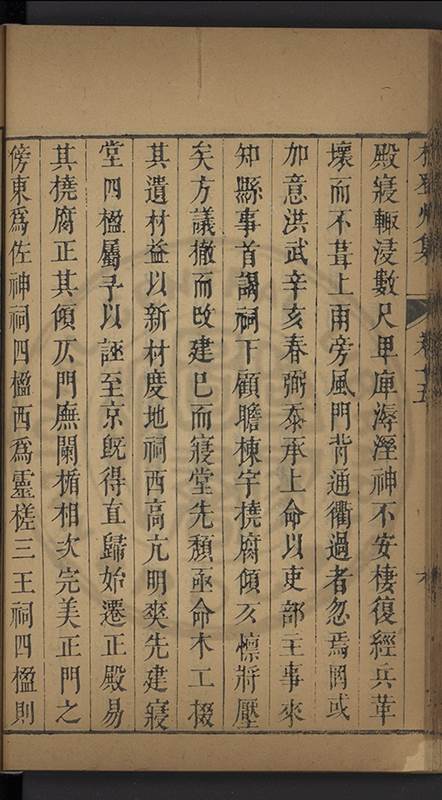 殿寢輒浸數尺卑庫溽溼神不安棲復經兵革
壞而不葺上雨旁風門背通衢過者忽焉罔或
加意洪武辛亥春弼忝承上命以吏部主事來
知縣事首謁祠下顧瞻棟宇橈腐傾仄懍將壓
矣方議撤而改建已而寢堂先頽亟命木工掇
其遺材益以新材度地祠西高亢明爽先建寢
堂四楹屬予以誣至京旣得直歸始遷正殿易
其橈腐正其傾仄門廡闌楯相次完美正門之
傍東爲佐神祠四楹西爲靈槎三王祠四楹則